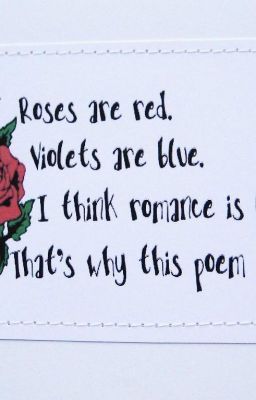 Roses are red.
Violets are blue.
I think romance is
That's why this poem